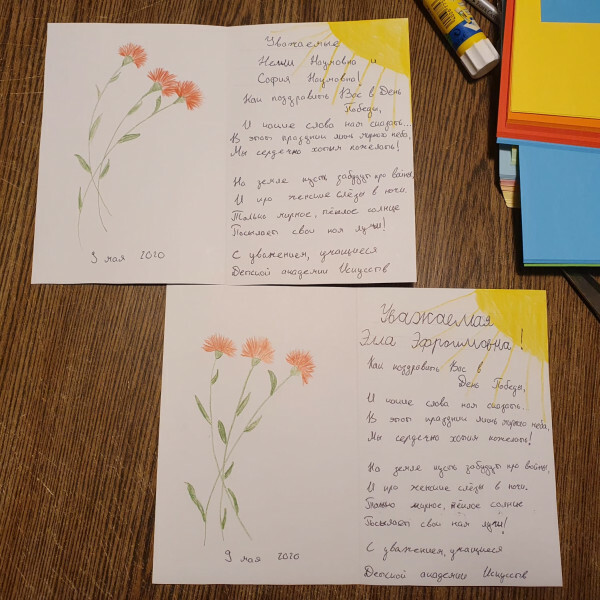 Уважаемые
Нелли Наумовна и
София Наумовна!
Как поздравить Вас в День
Победы,
И какие слова нам сказать...
В этот праздник лишь мирного неба,
Мы сердечно хотим пожелать!
На земле пусть забудут про войны,
И про женские слёзы в ночи.
Только мирное, тёплое солнце
Посылает свои нам лучи!
С уважением, учащиеся
Детской академии Искусств
9 мая 2020
Уважаемая
Элла Эфроимовна!
Как поздравить Вас в
День Победы,
И какие слова нам сказать...
В этот праздник лишь мирного неба,
Мы сердечно хотим пожелать!
На земле пусть забудут про войны,
И про женские слёзы в ночи.
Только мирное, тёплое солнце
Посылает свои нам лучи!
С уважением, учащиеся
Детской академии Искусств
9 мая 2020